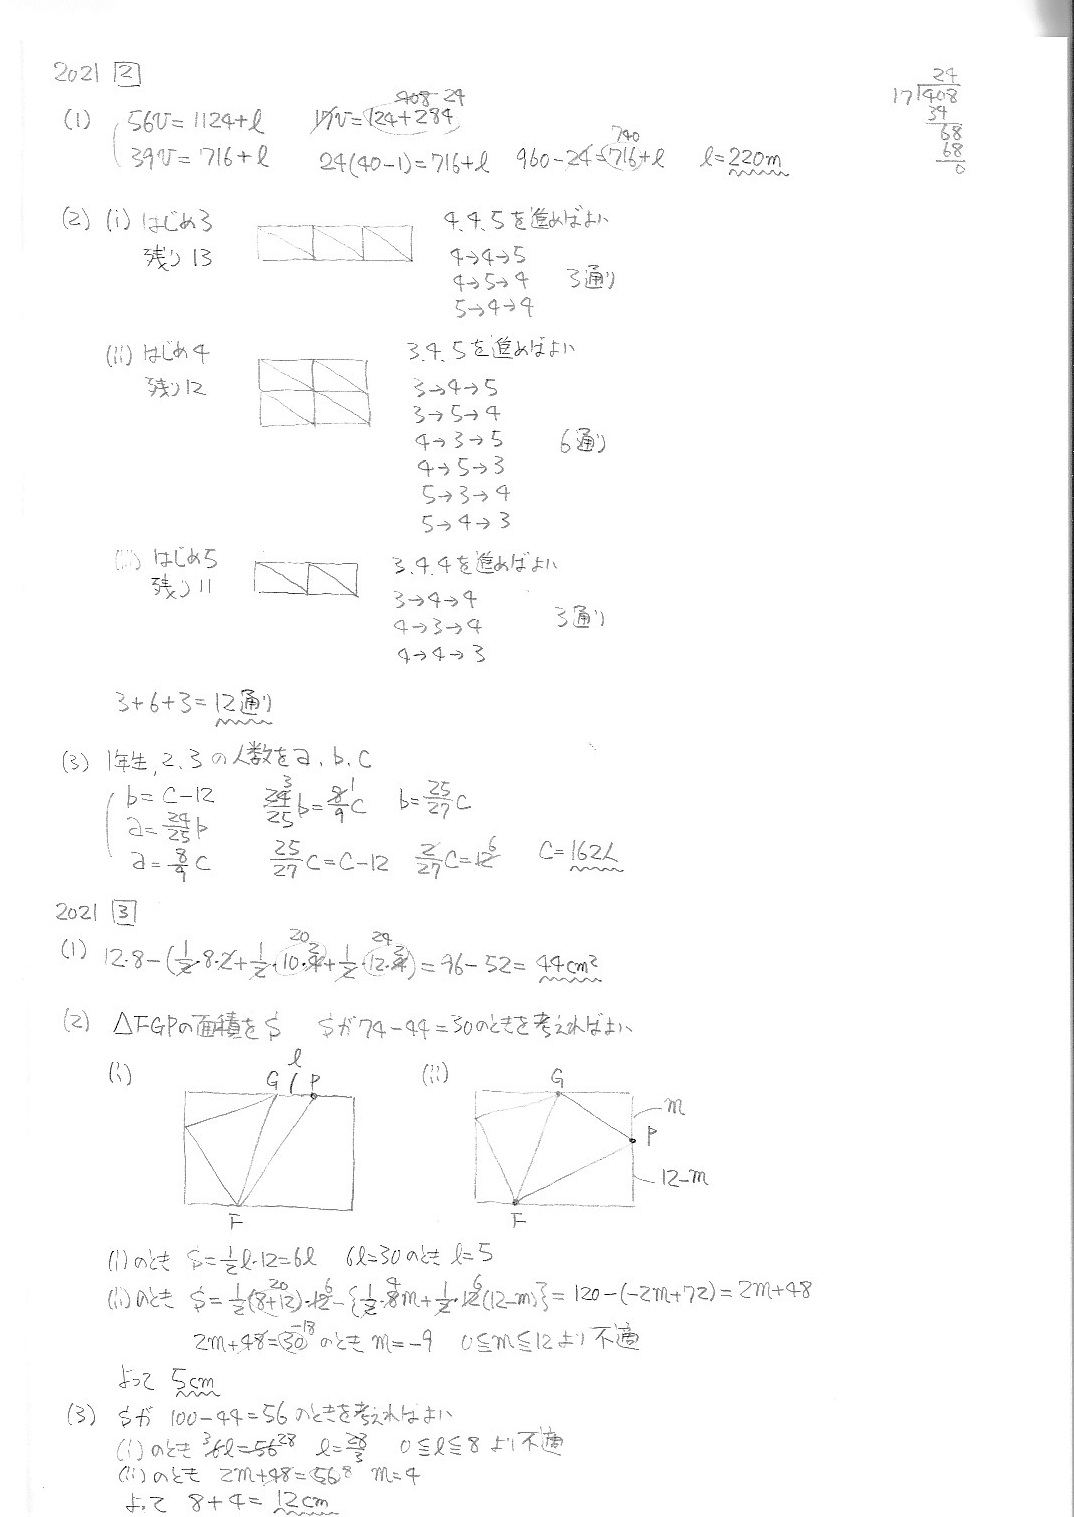 2021 2
(1) 56v=1124+l 17v=1124+284 408 24
39v=716+l 24(40-1)=716+l 960-24=716+l 740 l=220m
24
17)408
34
68
68
0
(2) (i) はじめ3
残り13
4.4.5を進めばよい
4→4→5
4→5→4 3通り
5→4→4
(ii) はじめ4
残り12
3.4.5を進めばよい
3→4→5
3→5→4
4→3→5 6通り
4→5→3
5→3→4
5→4→3
(iii) はじめ5
残り11
3.4.4を進めばよい
3→4→4
4→3→4 3通り
4→4→3
3+6+3=12通り
(3) 1年生, 2, 3の人数をa, b, c
b=c-12 24/25 b=8/9 c b=25/27 c
a=24/25 b
a=8/9 c 25/27 c=c-12 2/27 c=12 c=162人
2021 3
(1) 12·8-(1/2·8·2+1/2·10·4+1/2·12·4)=96-52=44cm²
(2) △FGPの面積をS Sが74-44=30のときを考えればよい
(i) (ii)
l
G P
F
G
m
P
12-m
F
(i)のとき S=1/2 l·12=6l 6l=30のとき l=5
(ii)のとき S=1/2(8+12)·12-{1/2·8m+1/2·12(12-m)}=120-(-2m+72)=2m+48
2m+48=30 -18 のとき m=-9 0≦m≦12より不適
よって 5cm
(3) Sが 100-44=56のときを考えればよい
(i)のとき 6l=56 l=28/3 0≦l≦8より不適
(ii)のとき 2m+48=56 8 m=4
よって 8+4=12cm